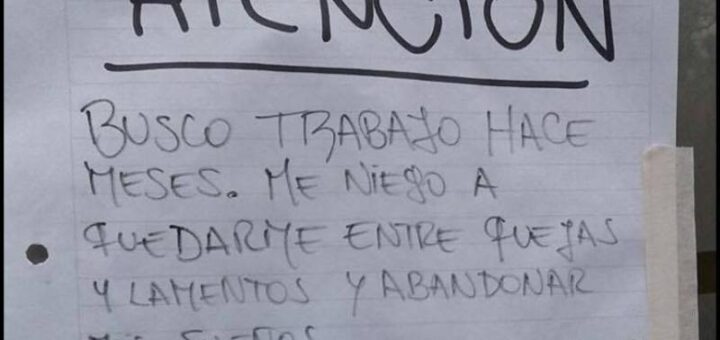 ATENCION
BUSCO TRABAJO HACE
MESES. ME NIEGO A
QUEDARME ENTRE QUEJAS
Y LAMENTOS Y ABANDONAR
MIS SUEÑOS